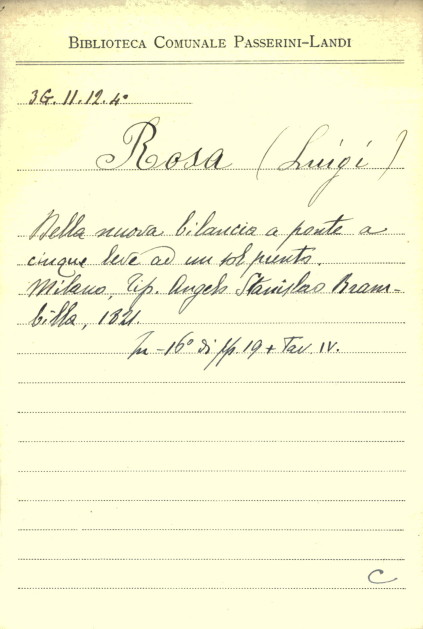 BIBLIOTECA COMUNALE PASSERINI-LANDI
3G. 11. 12. 4°
Rosa (Luigi)
Della nuova bilancia a ponte a
cinque leve ad un sol punto.
Milano, Tip. Angelo Stanislao Bram-
billa, 1821.
In-16° di pp. 19 + Tav. IV.
C